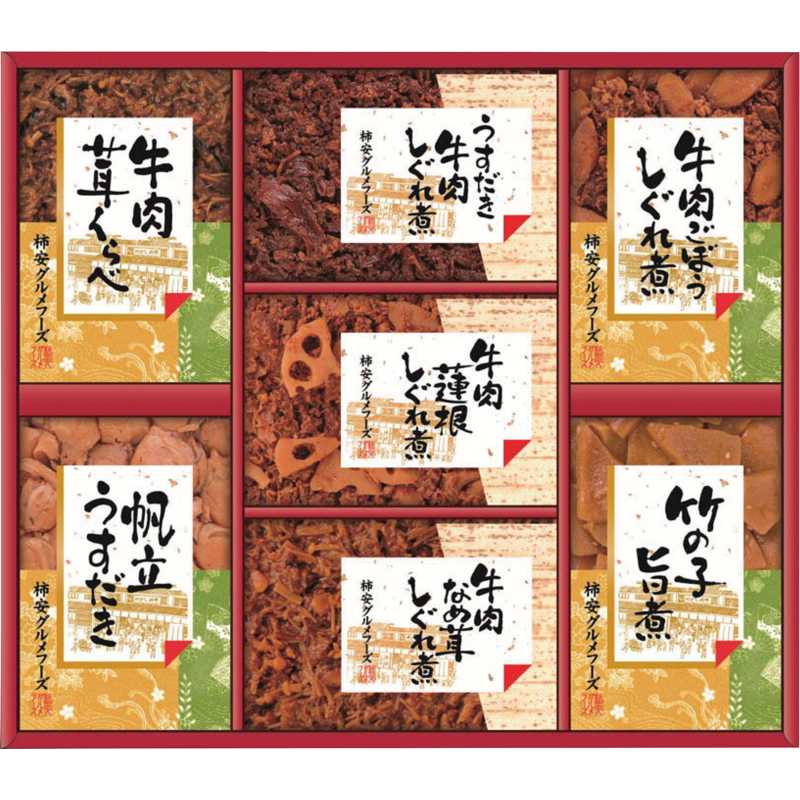 牛肉
茸くらべ
柿安グルメフーズ
うすだき
牛肉
しぐれ煮
柿安グルメフーズ
牛肉ごぼう
しぐれ煮
柿安グルメフーズ
牛肉
蓮根
しぐれ煮
柿安グルメフーズ
帆立
うすだき
柿安グルメフーズ
牛肉
なめ茸
しぐれ煮
柿安グルメフーズ
竹の子
旨煮
柿安グルメフーズ